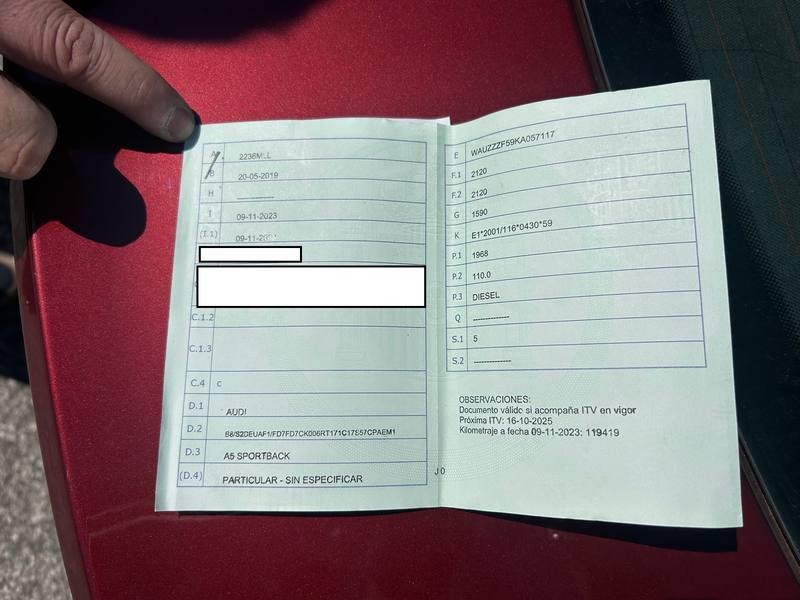 A 2236MLL
B 20-05-2019
H -----------
I 09-11-2023
(I.1) 09-11-
C.1.2
C.1.3
C.4 c
D.1 AUDI
D.2
D.3 A5 SPORTBACK
(D.4) PARTICULAR - SIN ESPECIFICAR
J 0
E WAUZZZF59KA057117
F.1 2120
F.2 2120
G 1590
K E1*2001/116*0430*59
P.1 1968
P.2 110.0
P.3 DIESEL
Q -------------
S.1 5
S.2 -------------
OBSERVACIONES:
Documento válido si acompaña ITV en vigor
Próxima ITV: 16-10-2025
Kilometraje a fecha 09-11-2023: 119419